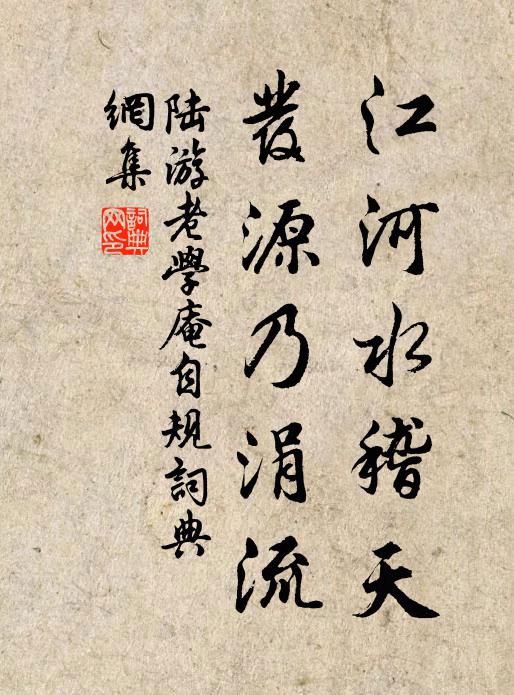 江河水稽天
發源乃涓流
陸游老學庵自規詞典
網集
詞典
网印